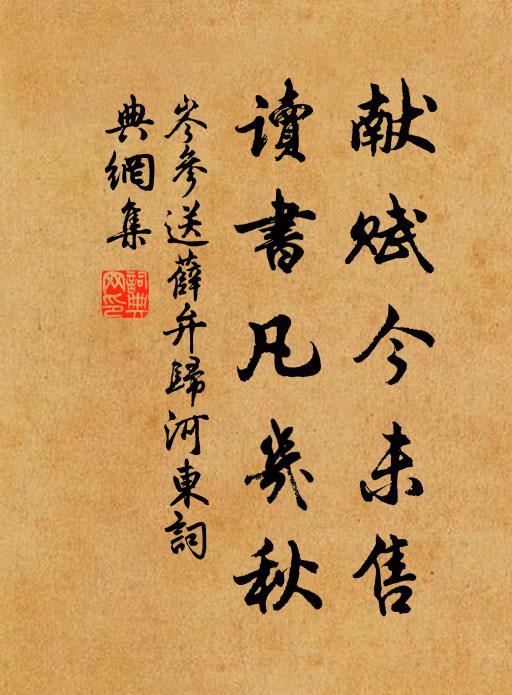 献赋今未售
讀書凡幾秋
岑參送薛弁歸河東詞
典網集
詞典網印